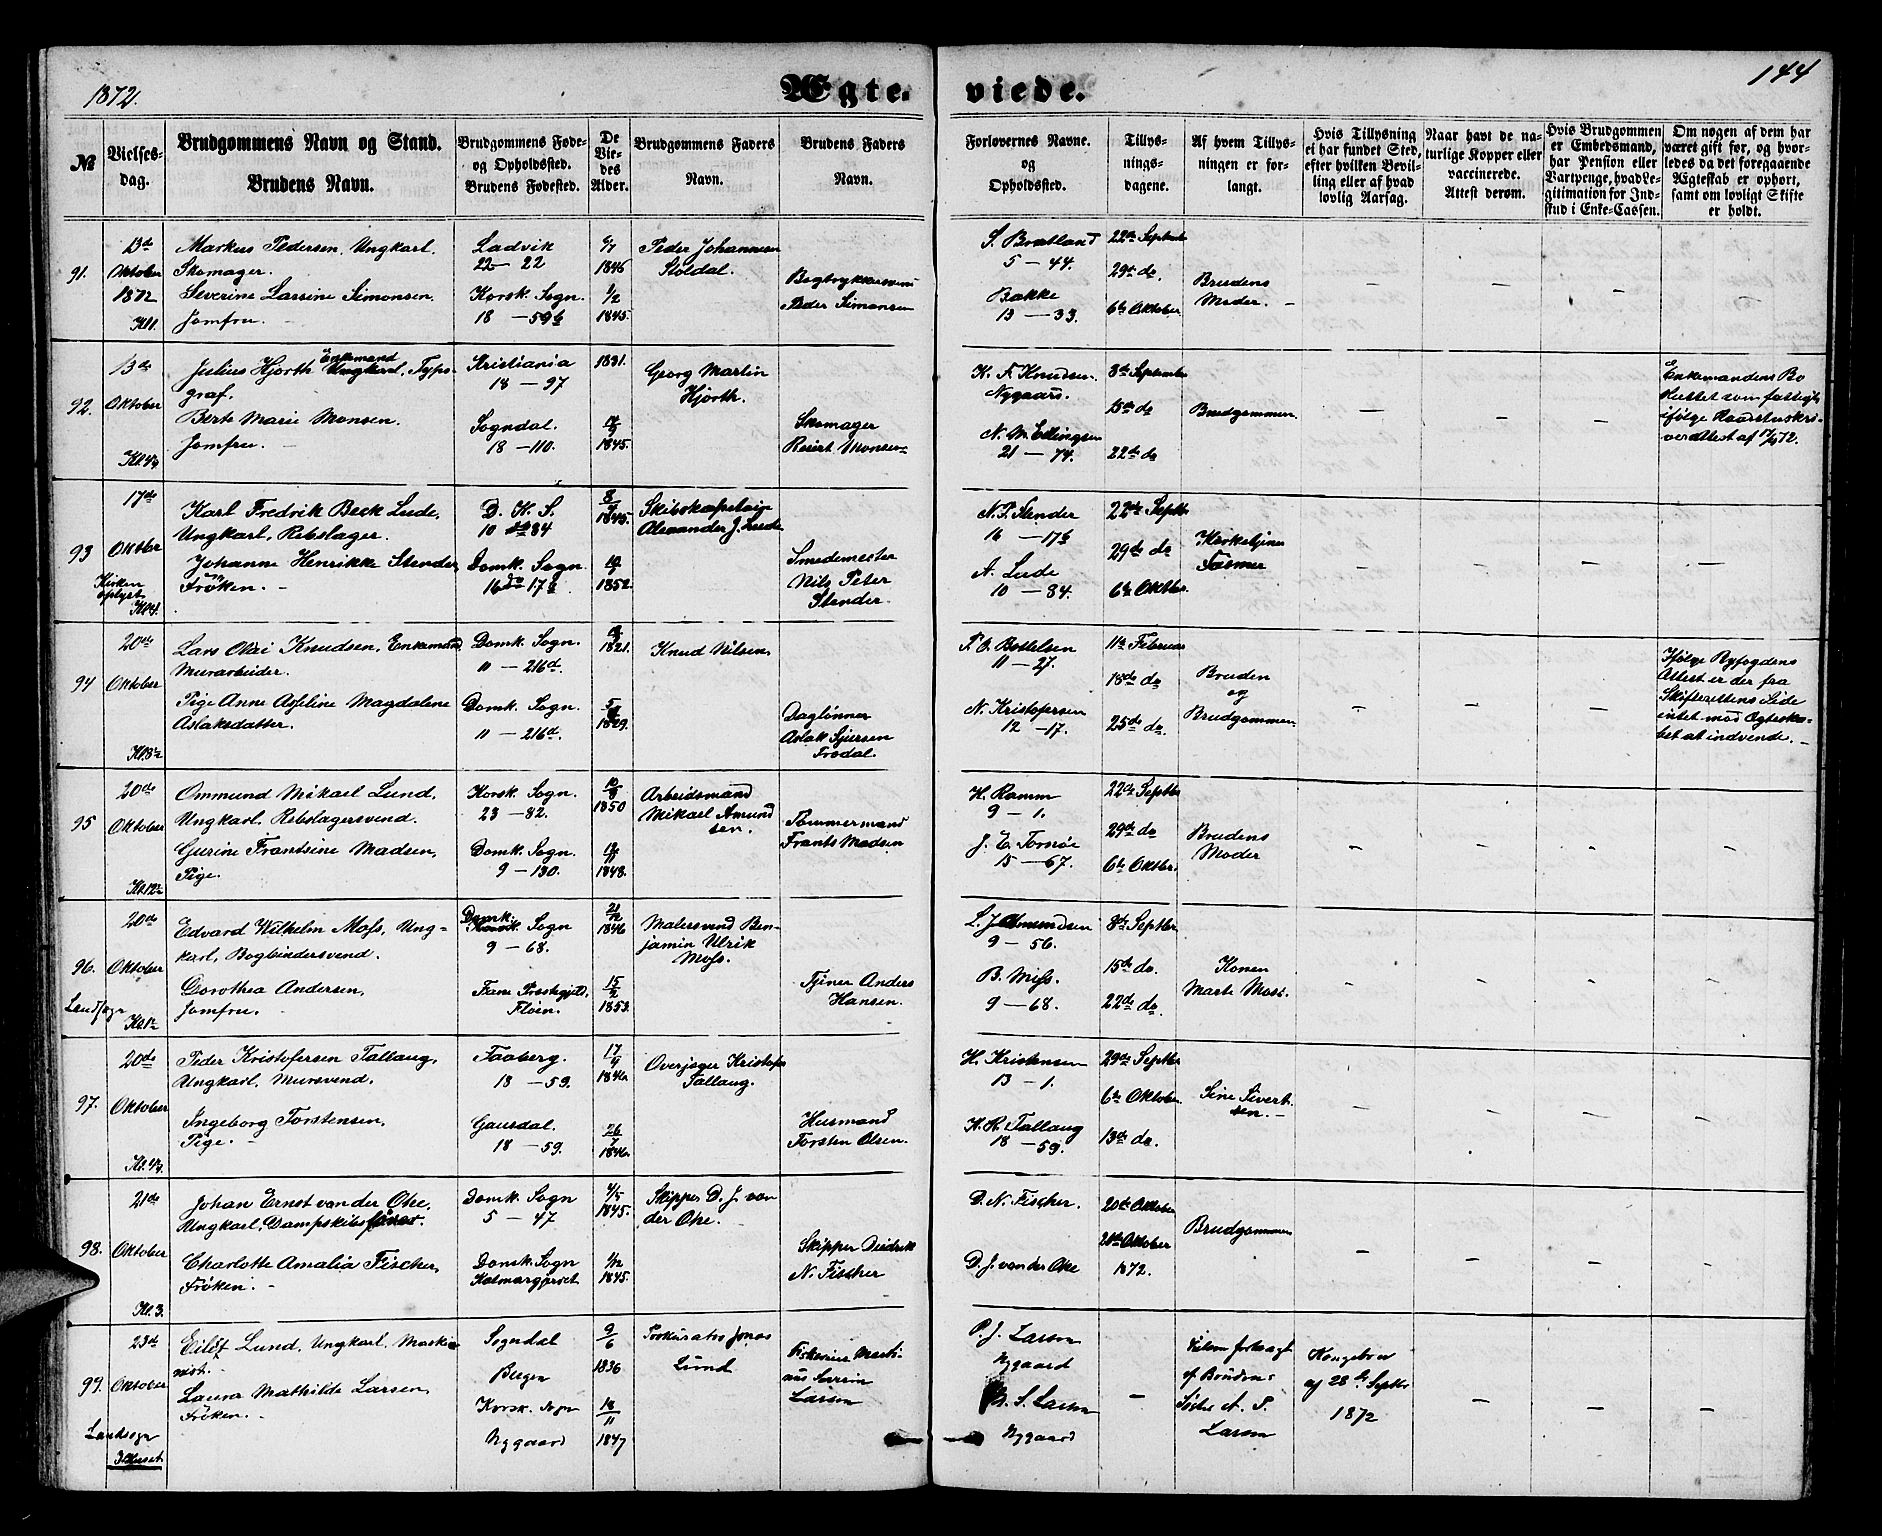 1872.
Ægte-
viede.
144
№
Vielses-
dag.
Brudgommens Navn og Stand.
Brudens Navn.
Brudgommens Føde-
og Opholdssted.
Brudens Fødested.
De
Vie-
des
Alder.
Brudgommens Faders
Navn.
Brudens Faders
Navn.
Forlovernes Navne.
og
Opholdssted.
Tillys-
nings-
dagene.
Af hvem Tillys-
ningen er for-
langt.
Hvis Tillysning
ei har fundet Sted,
efter hvilken Bevil-
ling eller af hvad
lovlig Aarsag.
Naar havt de na-
turlige Kopper eller
vaccinerede.
Attest derom.
Hvis Brudgommen
er Embedsmand,
har Pension eller
Vartpenge, hvad Le-
gitimation for Ind-
skud i Enke-Cassen.
Om nogen af dem har
været gift før, og hvor-
ledes da det foregaaende
Ægteskab er ophørt,
samt om lovligt Skifte
er holdt.
91.
13de
Oktober
1872
Kl 1.
Markus Pedersen, Ungkarl.
Skomager.
Severine Larsine Simonsen.
Jomfru. -
Ladvik
22 — 22
Korsk. Sogn.
18 — 59b
6/7
1846
1/2
1845.
Peder Johannesen
Støldal.
Bogtrykkersvend
Peder Simonsen
S. Bratland
5 — 44.
Bakke
13 — 33.
22de September
29de do.
6te Oktober
Brudens
Moder. -
92.
13de
Oktober
Julius Hjorth Enkemand Ungkarl, Typo-
graf.
Berte Marie Monsen.
Jomfru. -
Kristiania
18 — 97
Sogndal.
18 — 110.
1831.
1845.
Georg Martin
Hjorth.
Skomager
Reiert Monsen
K. F. Knudsen
Nygaard.
N. M. Ellingsen
21 — 74.
8de September
15de do
22de do
Brudgommen
Enkemandens Bo
sluttet som fattigt
ifølge Raadstuskri-
verattest af 17/9 72.
93
17de
Oktober
Kirken
oplyst
Karl Fredrik Beck Lude,
Ungkarl, Rebslager.
Johanne Henrikke Stender,
Frøken. -
D. K. S.
10 do 84
Domk. Sogn.
16 do 17b
1845.
1852.
Skibskaptein
Alexander J. Lude
Smedemester
Nils Peter
Stender.
N. P. Stender
16 — 17b
A. Lude
10 — 84.
22de Septbr
29de do
6te Oktber.
Kirketjener
Fasmer
94
20de
Oktober
Lars Olai Knudsen, Enkemand
Murarbeider.
Pige Anne Asseline Magdalene
Aslaksdatter.
Domk. Sogn.
11 — 216d.
Domk. Sogn.
11 — 216d.
1821.
1829.
Knud Nilsen.
Daglønner
Aslak Sjursen
Frodal.
T. O. Bottelsen
11 — 27.
N. Kristofersen
12 — 17.
11te Februar
18de do
25de do.
Bruden
og
Brudgommen
Ifølge Byfogdens
Attest er der fra
Skifterettens Side
intet mod Ægteska-
bet at indvende. -
95
20de
Oktober
Kl. 12½
Ommund Mikael Lund,
Ungkarl, Rebslagersvend.
Gurine Frantsine Madsen,
Pige.
Korsk. Sogn.
23 — 82.
Domk. Sogn.
9 — 130.
10/8
1850
1848.
Arbeidsmand
Mikael Amund
sen.
Tømmermand
Frants Madsen
H. Ramm
9 — 1.
J. E. Tornøe
15 — 67.
22de Septbr
29de do
6te Oktbr.
Brudens
Moder
96.
20de
Oktober
Landsogn
Edvard Wilhelm Moss, Ung-
karl, Bogbindersvend.
Dorothea Andersen,
Jomfru. -
Domk.
Korsk. Sogn
9 — 68.
Fane Præstegjeld,
Fløien.
21/12
1846
15/2
1853.
Malersvend Ben-
jamin Ulrik
Moss.
Tjener Anders
Hansen.
L. J. Amundsen
9 — 56.
B. Moss.
9 — 68.
8de Septbr
15de do.
22de do.
Konen
Marte Moss.
97.
20de
Oktober
Peder Kristofersen Tallaug,
Ungkarl, Mursvend.
Ingeborg Torstensen,
Pige. -
Faaberg.
18 — 59.
Gausdal.
18 — 59.
1846.
26/7
1846.
Overjæger Kristofer
Tallaug.
Husmand
Torsten Olsen.
H. Kristensen
13 — 1.
K. K. Tallaug
18 — 59.
29de Septbr
6te Oktober
13de do.
Sine Sivert-
sen. -
98.
21de
Oktober
Kl. 3.
Johan Ernst van der Ohe.
Ungkarl, Dampskibsfører.
Charlotte Amalia Fischer,
Frøken. -
Domk. Sogn
5 — 47
Domk. Sogn
Kalmargjerdet
4/5
1845.
1/12
1845.
Skipper D. J. van
der Ohe.
Skipper Deidrik
N. Fischer
D. N. Fischer.
D. J. van der Ohe
20de Oktober
20de Oktober
1872.
Brudgommen
99.
23de
Oktober
Landsogn
Eilef Lund, Ungkarl, Maski-
nist. -
Laura Mathilde Larsen,
Frøken. -
Sogndal
Bergen
Korsk. Sogn
Nygaard
9/6
1836
18/11
1847
Prokurator Jonas
Lund
Larsen
P. J. Larsen
Nygaard
S. Larsen
Nygaard
forlangt
af Brudens
Søster A. P.
Larsen
Kongebrev
af 28de Septbr
1872